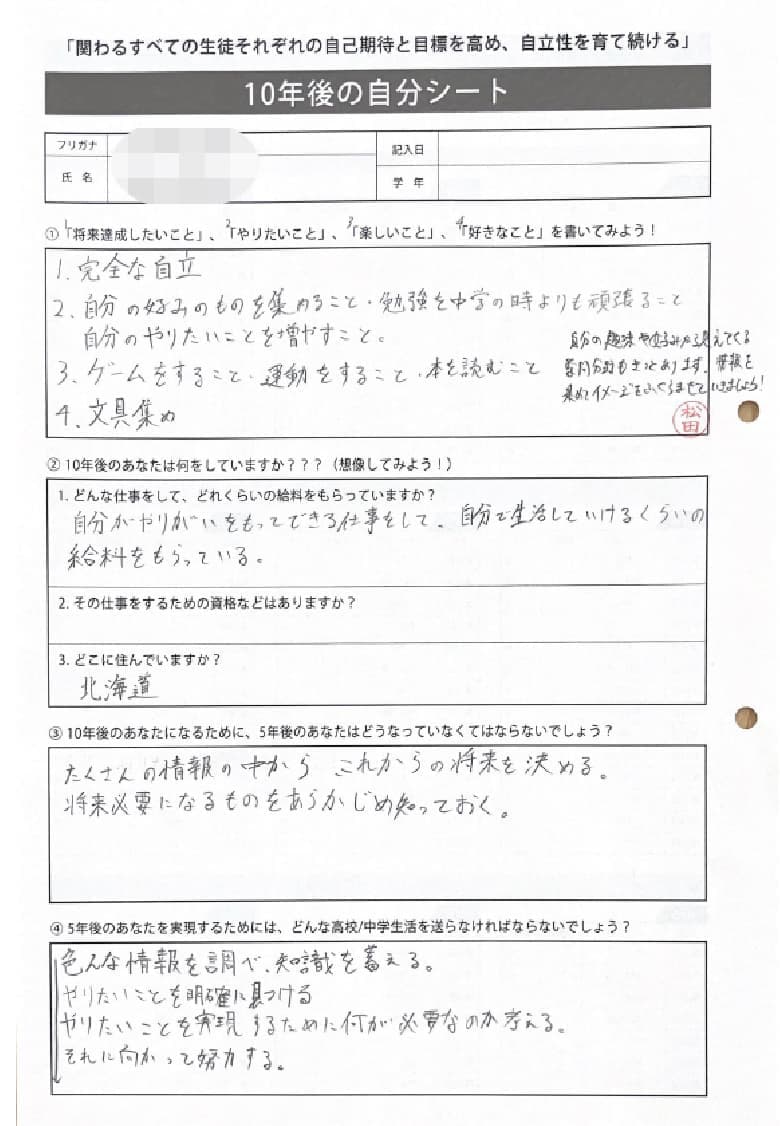 「関わるすべての生徒それぞれの自己期待と目標を高め、自立性を育て続ける」
10年後の自分シート
フリガナ
記入日
氏 名
学 年
①1「将来達成したいこと」、2「やりたいこと」、3「楽しいこと」、4「好きなこと」を書いてみよう！
1. 完全な自立
2. 自分の好みのものを集めること・勉強を中学の時よりも頑張ること
自分のやりたいことを増やすこと。
3. ゲームをすること・運動をすること・本を読むこと
4. 文具集め
自分の趣味や好みから見えてくる
もきっとあります。情報を
集めてイメージをふくらませていきましょう！
松田
② 10年後のあなたは何をしていますか？？？（想像してみよう！）
1. どんな仕事をして、どれくらいの給料をもらっていますか？
自分がやりがいをもってできる仕事をして、自分で生活していけるくらいの
給料をもらっている。
2. その仕事をするための資格などはありますか？
3. どこに住んでいますか？
北海道
③ 10年後のあなたになるために、5年後のあなたはどうなっていなくてはならないでしょう？
たくさんの情報の中から これからの将来を決める。
将来必要になるものをあらかじめ知っておく。
④ 5年後のあなたを実現するためには、どんな高校/中学生活を送らなければならないでしょう？
色んな情報を調べ、知識を蓄える。
やりたいことを明確に見つける
やりたいことを実現するために何が必要なのか考える。
それに向かって努力する。